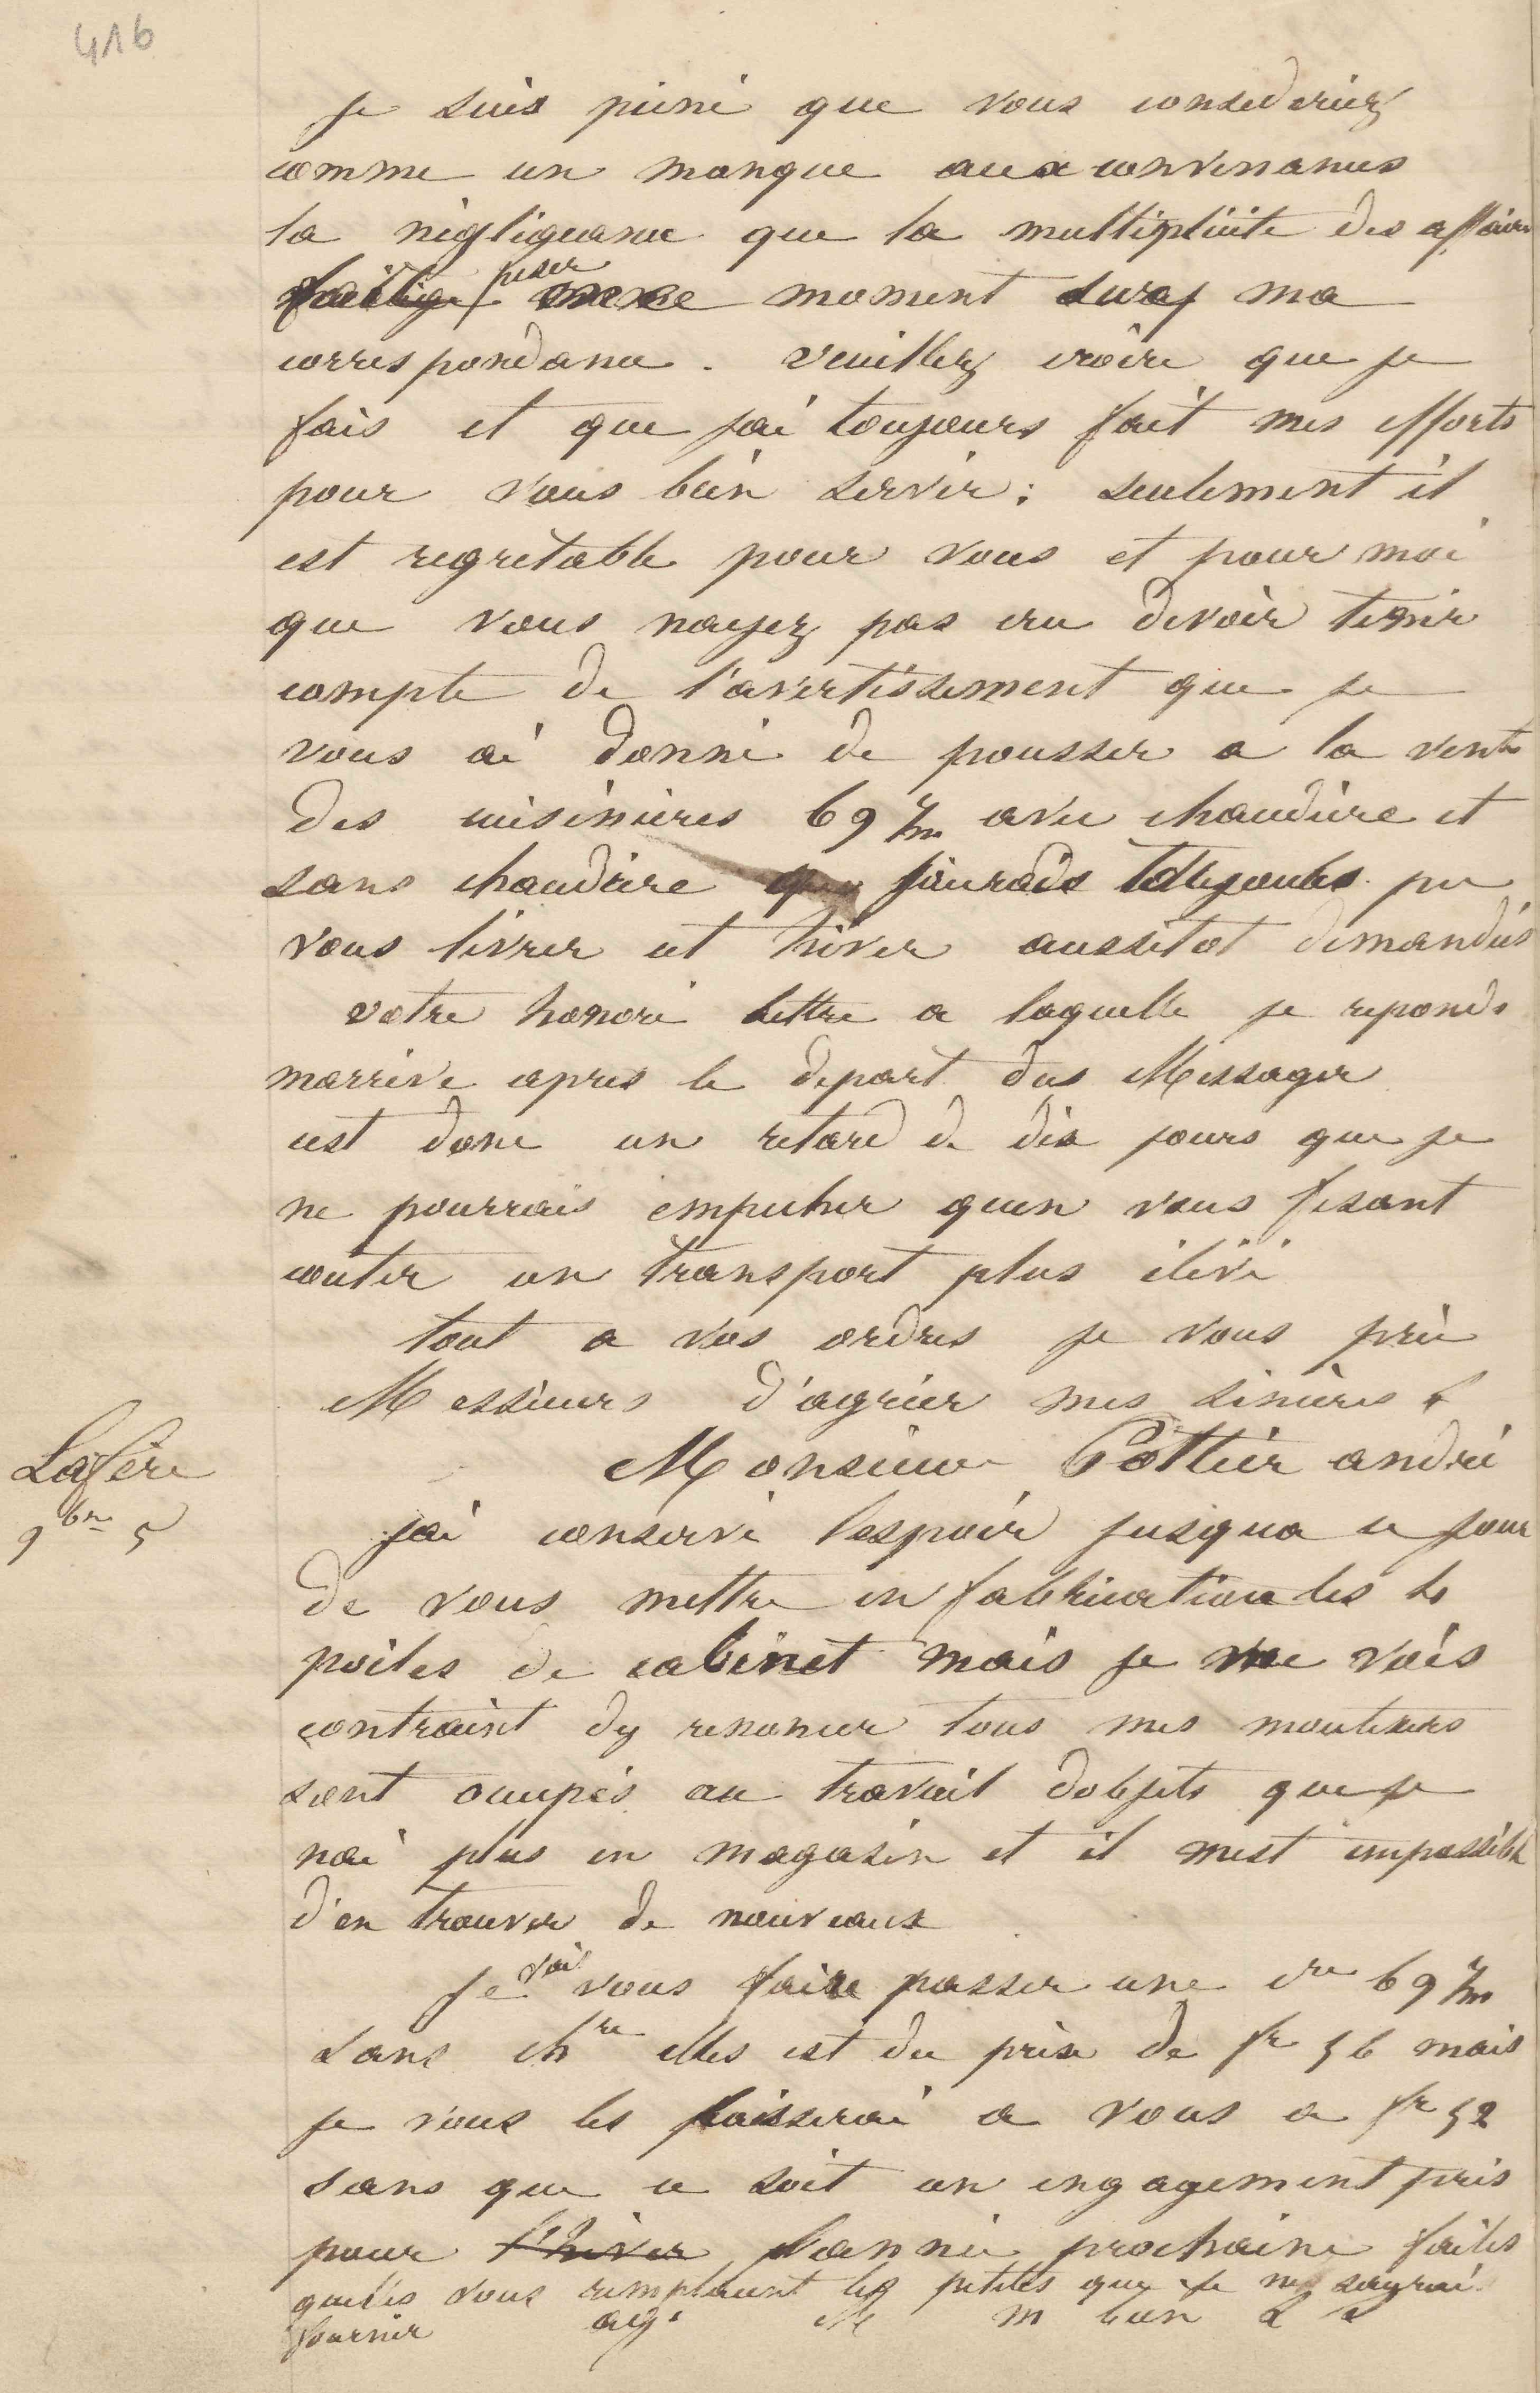 416
je suis peiné que vous consideriez
comme un manque aux convenances
la négligeance que la multiplicité des affaires
peser ce moment sur ma
correspondance. veuillez croire que je
fais et que jai toujours fait mes efforts
pour vous bien servir; seulement il
est regretable pour vous et pour moi
que vous nayez pas cru devoir tenir
compte de l'avertissement que je
vous ai donné de pousser a la vente
des cuisinières 69 c/m avec chaudière et
sans chaudière que jaurais toujours pu
vous livrer cet hiver aussitot demandés
votre honoré lettre a laquelle je reponds
marrive apres le depart des Messager
cest donc un retard de dix jours que je
ne pourrais empecher quen vous fesant
couter un transport plus élévé
tout a vos ordres je vous prie
Messieurs d'agréer mes sincères &
Lafère
9bre 5
Monsieur Pottier andré
jai conservé lespoir jusqua ce jour
de vous mettre en fabrication les
poiles de cabinet mais je me vois
contraint dy renoncer tous mes mouleurs
sont occupés au travail dobjets que je
nai plus en magasin et il mest impossible
d'en trouver de nouveaux
Je vai vous faire passer une cre 69 c/m
sans chre elles est du prix de fr 56 mais
je vous les laisserai a vous a fr 52
sans que ce soit un engagement pris
pour l'hiver lannée prochaine faites
quelles vous remplacent les petites que je ne sayrai
fournir agr M m bien